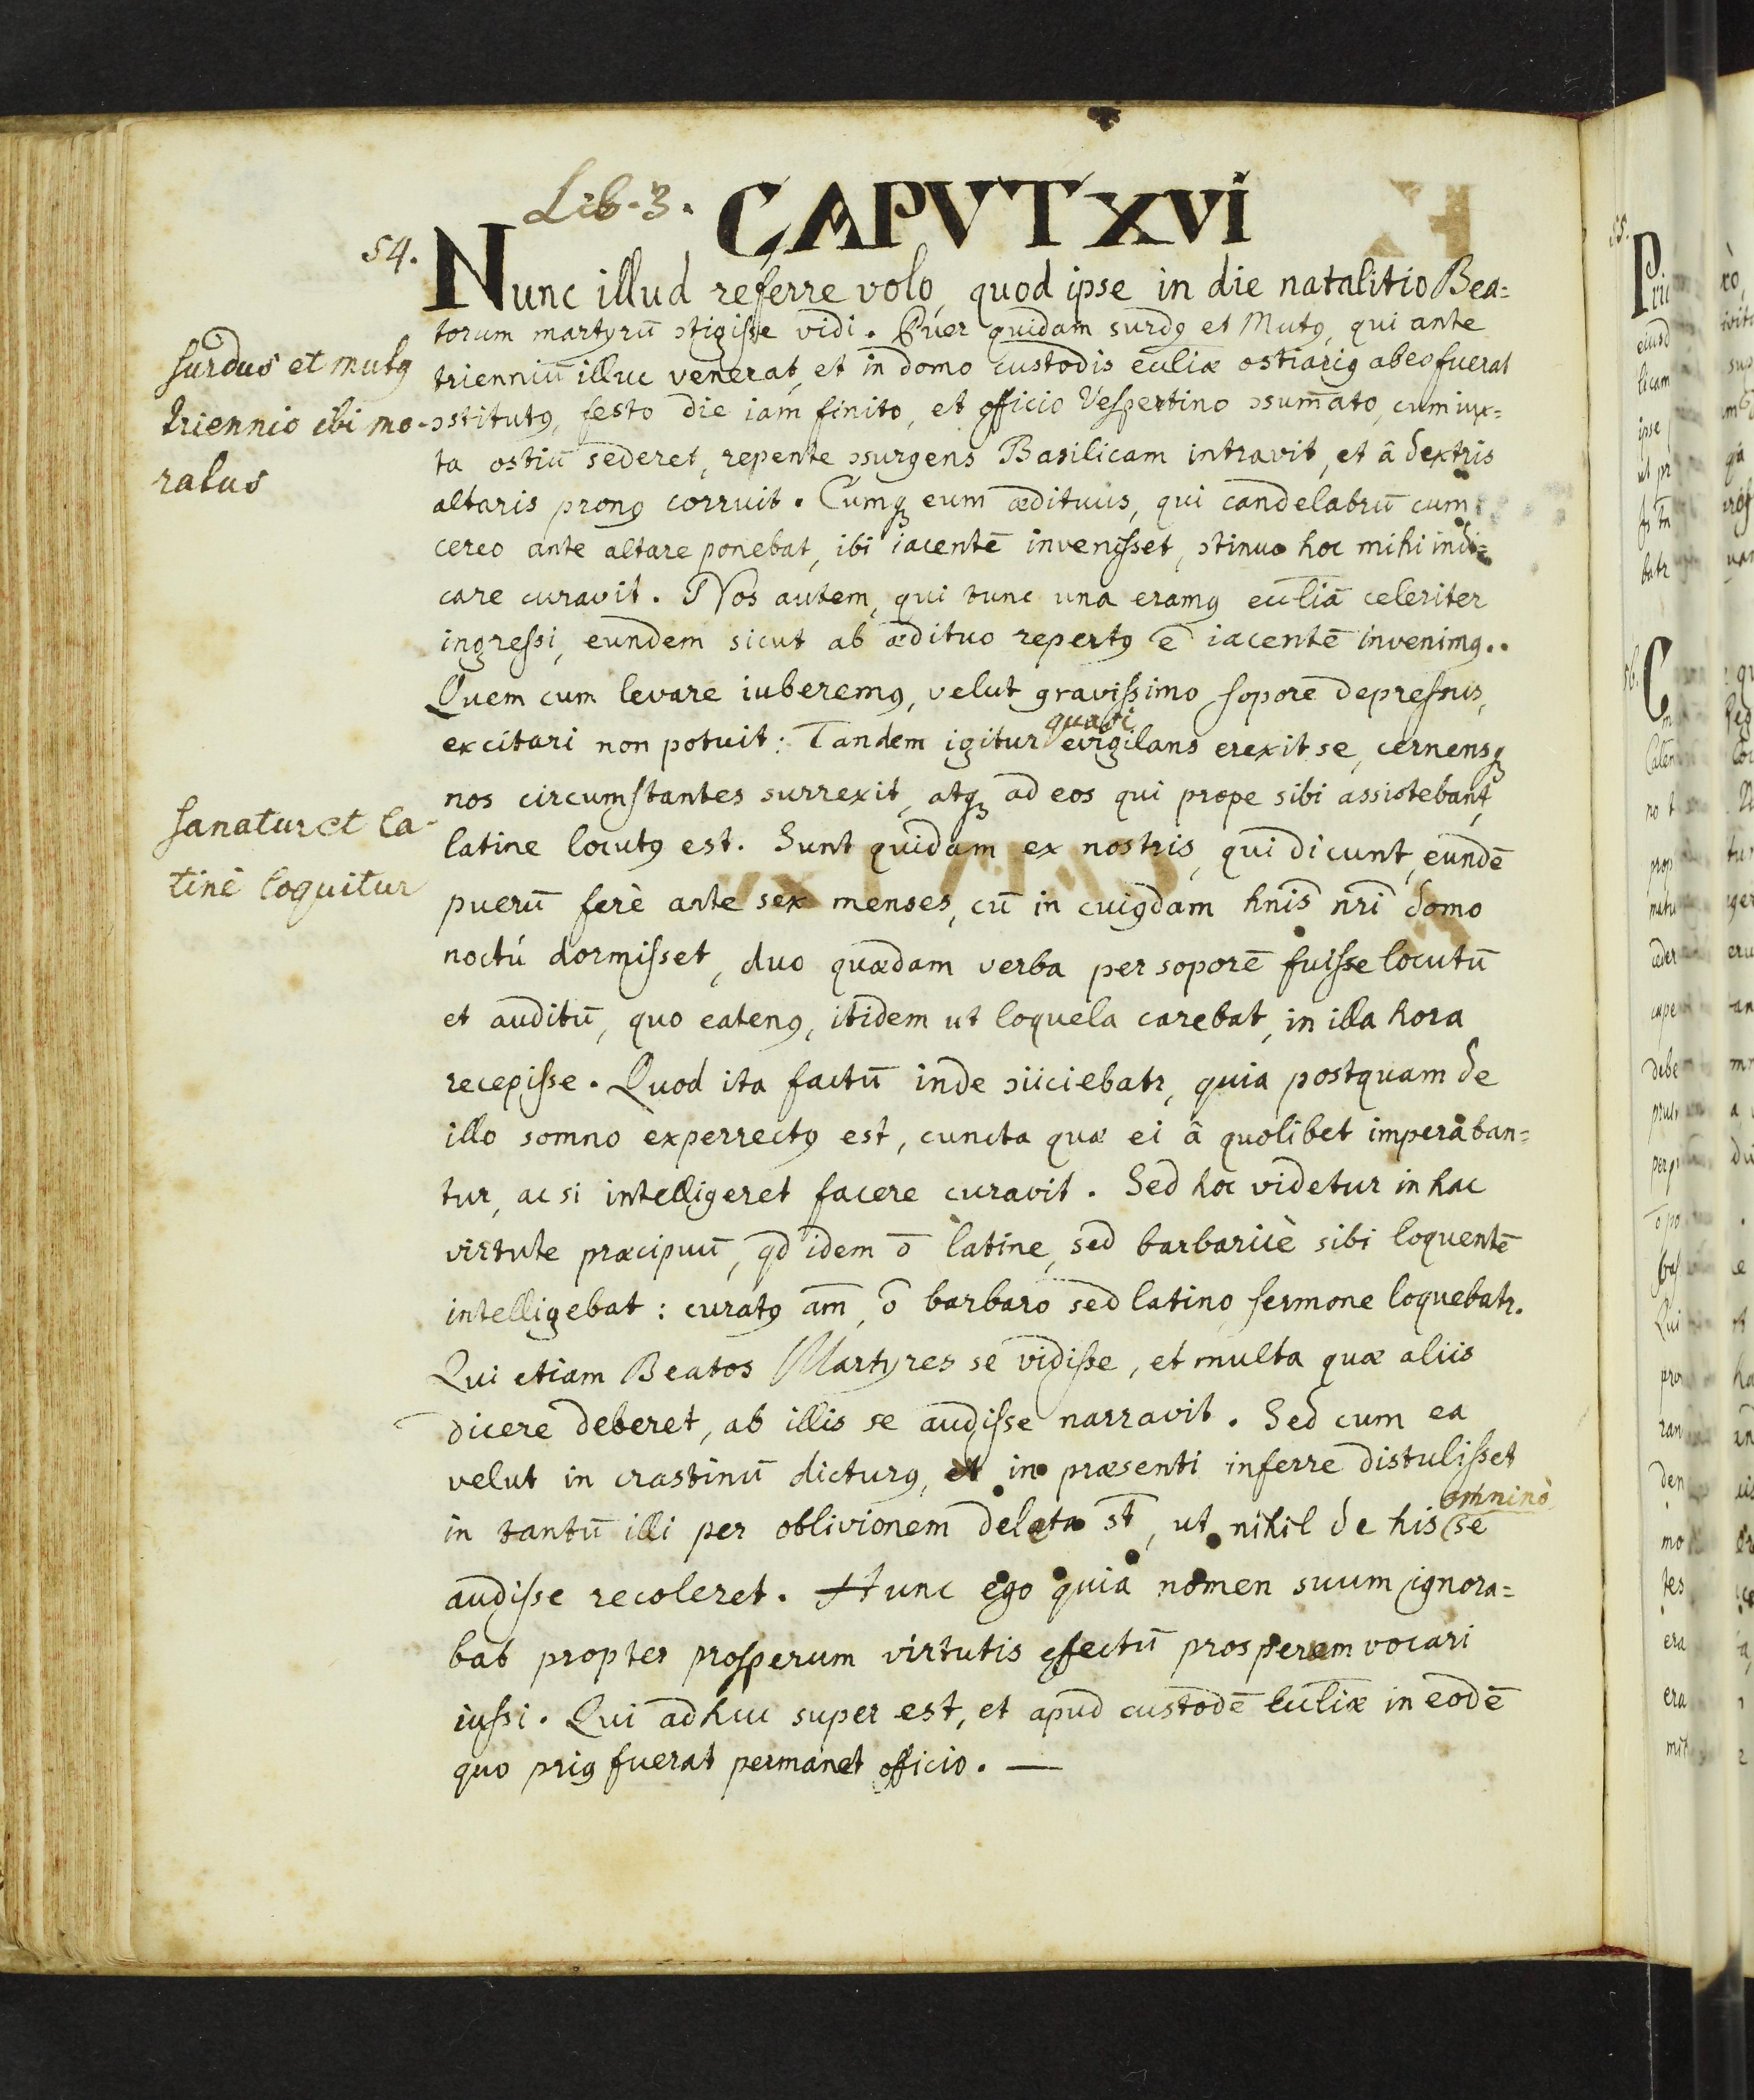 Lib. 3. CAPVT XVI
54.
Nunc illud referre volo, quod ipse in die natalitio Bea=
torum martyrū ɔtigisse vidi. Puer quidam surdꝯ et Mutꝯ, qui ante
surdus et mutꝯ
trienniū illuc venerat, et in domo custodis eccl̄iæ ostiariꝯ ab eo fuerat
triennio ibi mo-
ɔstitutꝯ, festo die iam finito, et officio Vespertino ɔsum̄ato, cum iux-
ratus
ta ostiū sederet, repente ɔsurgens Basilicam intravit, et â dextris
altaris pronꝯ corruit. Cumqꝫ eum ædituus, qui candelabrū cum
cereo ante altare ponebat, ibi iacentē invenisset, ɔtinuo hoc mihi indi=
care curavit. Nos autem, qui tunc una eramꝯ eccl̄iā celeriter
ingressi, eundem sicut ab ædituo repertꝯ ē iacentē invenimꝯ..
Quem cum levare iuberemꝯ, velut gravissimo sopore depressus,
excitari non potuit: Tandem igitur quasi evigilans erexit se, cernensqꝫ
nos circumstantes surrexit, atqꝫ ad eos qui prope sibi assistebant,
sanatur et la-
latine locutꝯ est. Sunt quidam ex nostris, qui dicunt, eundē
tinè loquitur
puerū ferè ante sex menses, cū in cuiꝯdam hn̄is nr̄i domo
noctú dormisset, duo quædam verba per soporē fuisse locutū
et auditū, quo eatenꝯ, itidem ut loquela carebat, in illa hora
recepisse. Quod ita factū inde ɔiiciebatr, quia postquam de
illo somno experrectꝯ est, cuncta quæ ei â quolibet imperaban=
tur, ac si intelligeret facere curavit. Sed hoc videtur in hac
virtute præcipuū, qd idem ō latine, sed barbaricè sibi loquentē
intelligebat: curatꝯ am̄, ō barbaro sed latino sermone loquebatr.
Qui etiam Beatos Martyres se vidisse, et multa quæ aliis
dicere deberet, ab illis se audisse narravit. Sed cum ea
velut in crastinū dicturꝯ, et in præsenti inferre distulisset
in tantū illi per oblivionem deleta st̄, ut nihil de his omninò se
audisse recoleret. Hunc ego quia nomen suum ignora=
bat propter prosperum virtutis effectū prosperum vocari
iussi. Qui adhuc super est, et apud custodē eccl̄iæ in eodē
quo priꝯ fuerat permanet officio. —